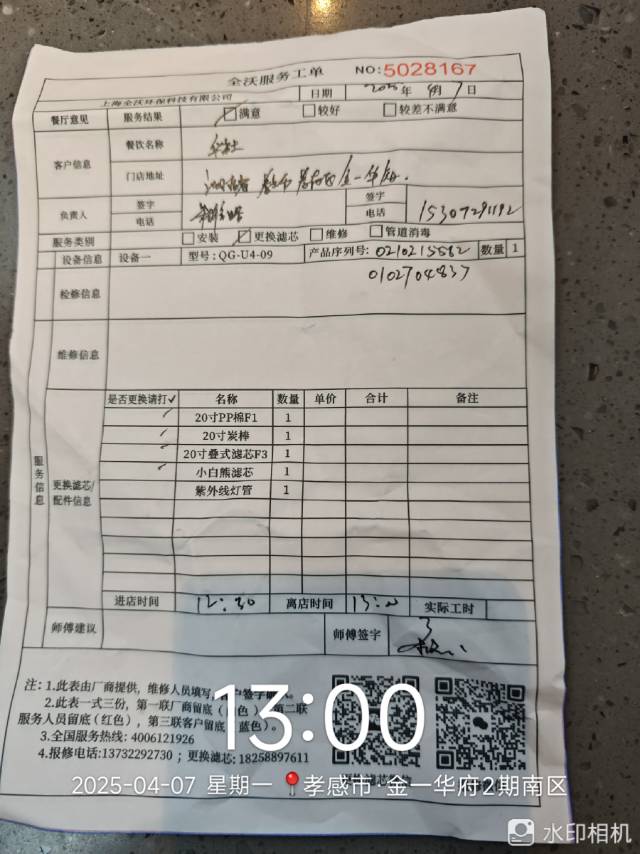 全沃服务工单 NO:5028167
上海全沃环保科技有限公司 日期 2025年4月7日
餐厅意见 服务结果 满意 较好 较差不满意
客户信息 餐饮名称 华莱士
门店地址 湖北省 孝感市 金一华府.
负责人 签字 签字
电话 电话 15307291192
服务类别 安装 更换滤芯 维修 管道消毒
设备信息 设备一 型号:QG-U4-09 产品序列号: 0210215582 数量 1
0102704837
检修信息
维修信息
服务信息
更换滤芯/配件信息
是否更换请打✓ 名称 数量 单价 合计 备注
✓ 20寸PP棉F1 1
✓ 20寸炭棒 1
✓ 20寸叠式滤芯F3 1
✓ 小白熊滤芯 1
紫外线灯管 1
进店时间 12:30 离店时间 13:00 实际工时
师傅建议 师傅签字
注: 1.此表由厂商提供，维修人员填写，客户签字
2.此表一式三份，第一联厂商留底（色），第二联
服务人员留底（红色），第三联客户留底（蓝色）。
3.全国服务热线: 4006121926
4.报修电话:13732292730 ; 更换滤芯: 18258897611
13:00
2025-04-07 星期一 孝感市·金一华府2期南区
水印相机